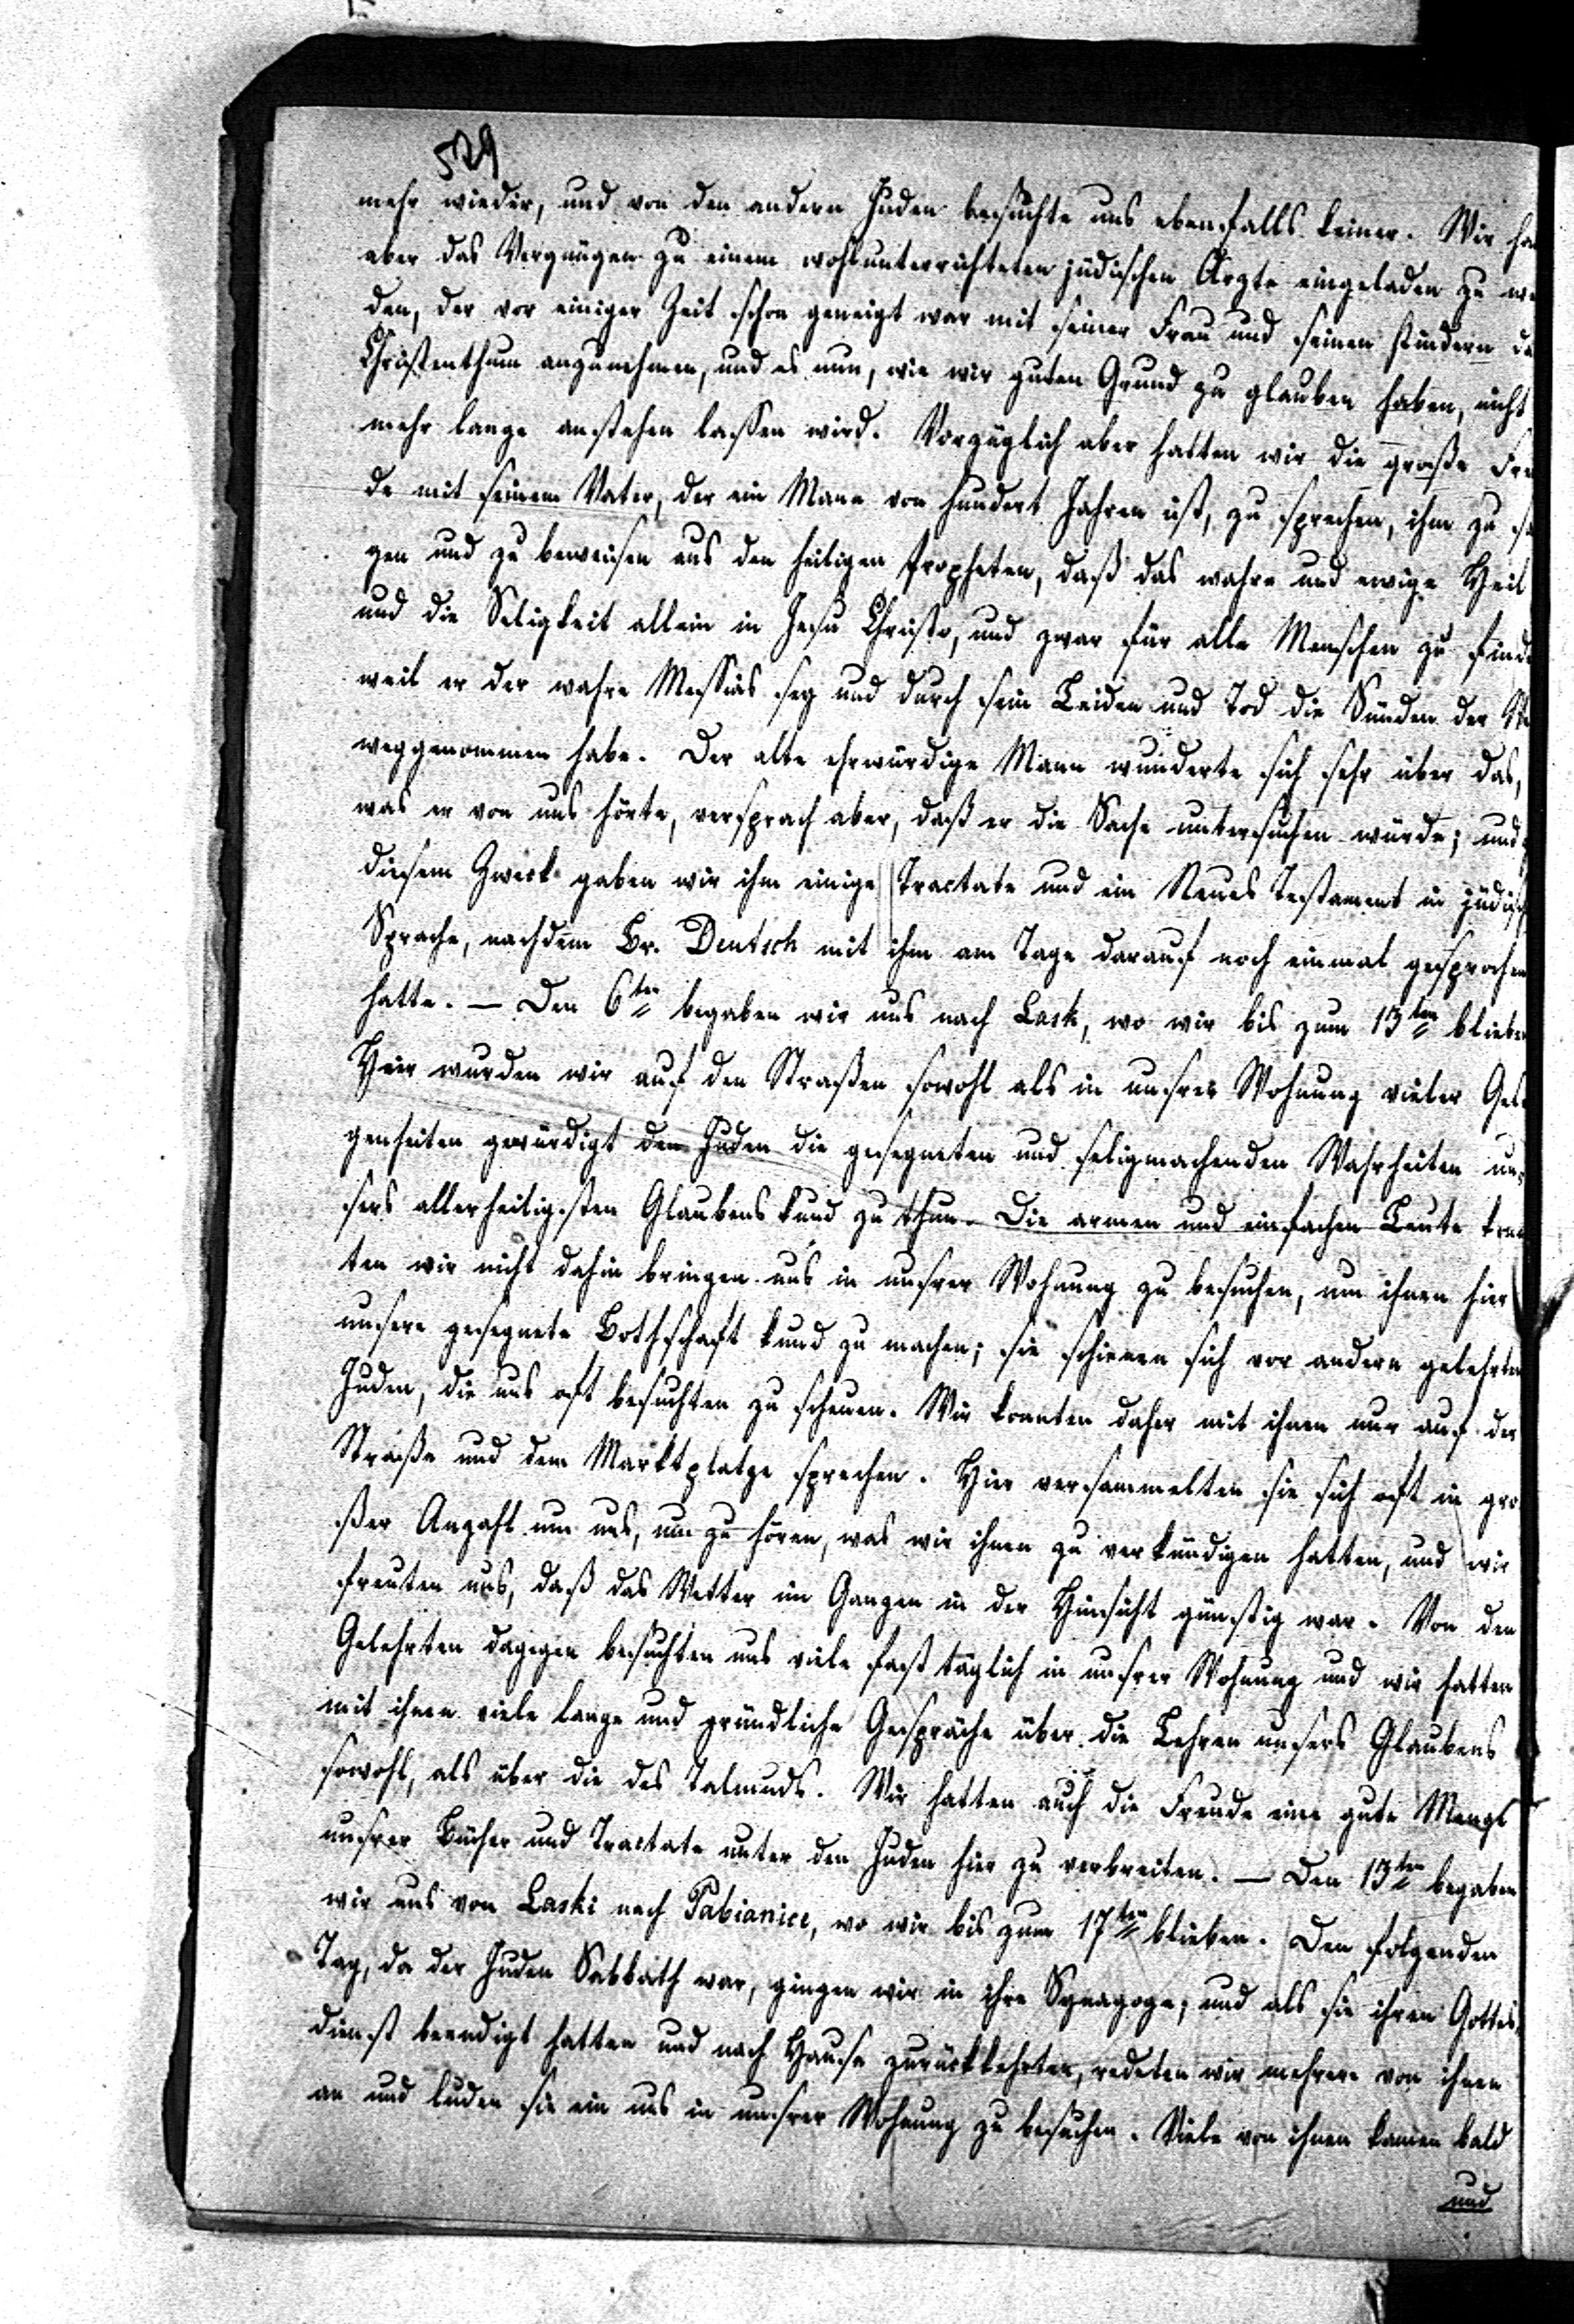 529
mehr wieder, und von den andern Juden besuchte uns ebenfalls keiner. Wir ha
aber das Vergnügen zu einem wohlunterrichteten jüdischen Arzte eingeladen zu we
den, der vor einiger Zeit schon geneigt war mit seiner Frau und seinen Kindern da
Christenthum anzunehmen, und es nun, wie wir guten Grund zu glauben haben, nicht
mehr lange anstehen lassen wird. Vorzüglich aber hatten wir die große Freu
de mit seinem Vater, der ein Mann von hundert Jahren ist, zu sprechen, ihm zu sa
gen und zu beweisen aus den heiligen Propheten, daß das wahre und ewige Heil
und die Seligkeit allein in Jesu Christo, und zwar für alle Menschen zu finde
weil er der wahre Messias sey und durch sein Leiden und Tod die Sünden der We
weggenommen habe. Der alte ehrwürdige Mann wunderte sich sehr über das,
was er von uns hörte, versprach aber, daß er die Sache untersuchen würde; und
diesem Zweck gaben wir ihm einige Tractate und ein Neues Testament in jüdisch
Sprache, nachdem Br. Deutsch mit ihm am Tage darauf noch einmal gesprochen
hatte. — Den 6ten begaben wir uns nach Lask, wo wir bis zum 13ten blieben
Hier wurden wir auf den Straßen sowohl als in unsrer Wohnung vieler Gele
genheiten gewürdigt den Juden die gesegneten und seligmachenden Wahrheiten un-
sers allerheiligsten Glaubens kund zu thun. Die armen und einfachen Leute konn
ten wir nicht dahin bringen uns in unsrer Wohnung zu besuchen, um ihnen hier
unsere gesegnete Bothschaft kund zu machen; sie schienen sich vor andern gelehrten
Juden, die uns oft besuchten zu scheuen. Wir konnten daher mit ihnen nur auf der
Straße und dem Marktplatze sprechen. Hier versammelten sie sich oft in gro
ßer Anzahl um uns, um zu hören, was wir ihnen zu verkündigen hatten, und wir
freuten uns, daß das Wetter im Ganzen in der Hinsicht günstig war. Von den
Gelehrten dagegen besuchten uns viele fast täglich in unsrer Wohnung und wir hatten
mit ihnen viele lange und gründliche Gespräche über die Lehren unsers Glaubens
sowohl, als über die des Talmuds. Wir hatten auch die Freude eine gute Menge
unsrer Bücher und Tractate unter den Juden hier zu verbreiten. — Den 13ten begaben
wir uns von Laski nach Pabianice, wo wir bis zum 17ten blieben. Den folgenden
Tag, da der Juden Sabbath war, gingen wir in ihre Synagoge; und als sie ihren Gottes-
dienst beendigt hatten und nach Hause zurückkehrten, redeten wir mehrere von ihnen
an und luden sie ein uns in unsrer Wohnung zu besuchen. Viele von ihnen kamen bald
und